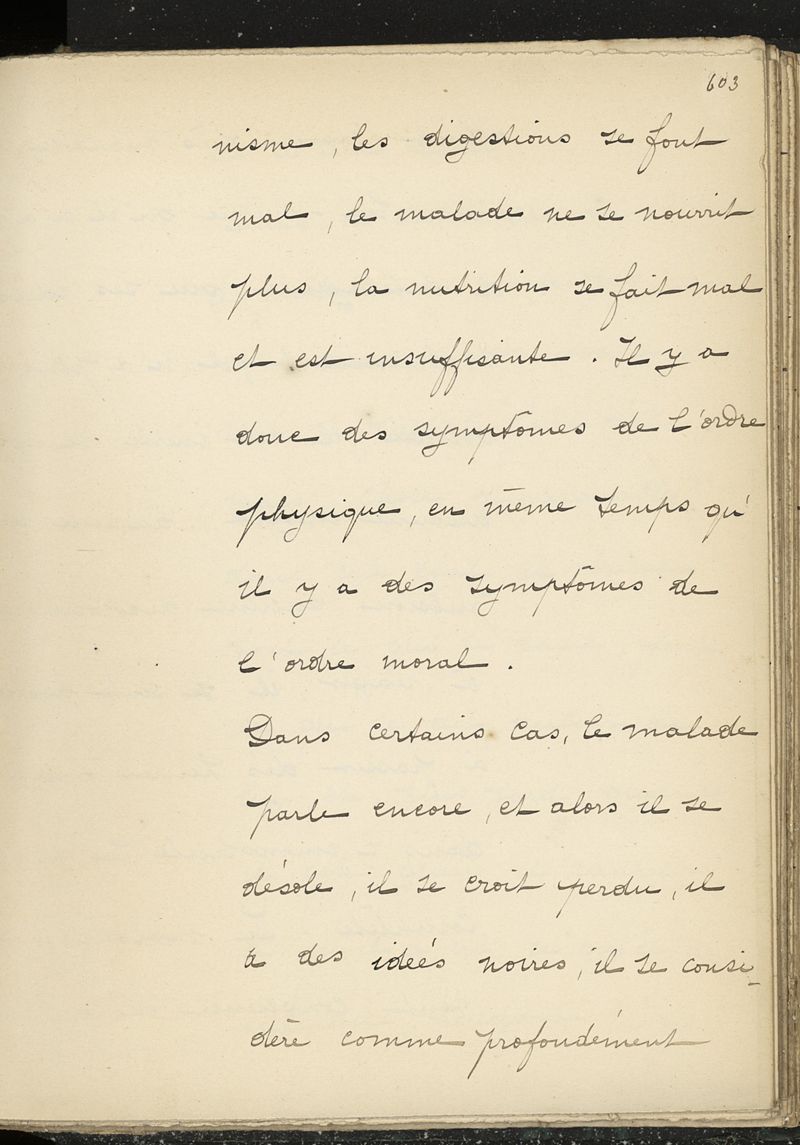 603
nisme, les digestions se font
mal, le malade ne se nourrit
plus, la nutrition se fait mal
et est insuffisante. Il y a
donc des symptômes de l'ordre
physique, en même temps qu'
il y a des symptômes de
l'ordre moral.
Dans certains cas, le malade
parle encore, et alors il se
désole, il se croit perdu, il
a des ideés noires, il se consi-
dère comme profondément